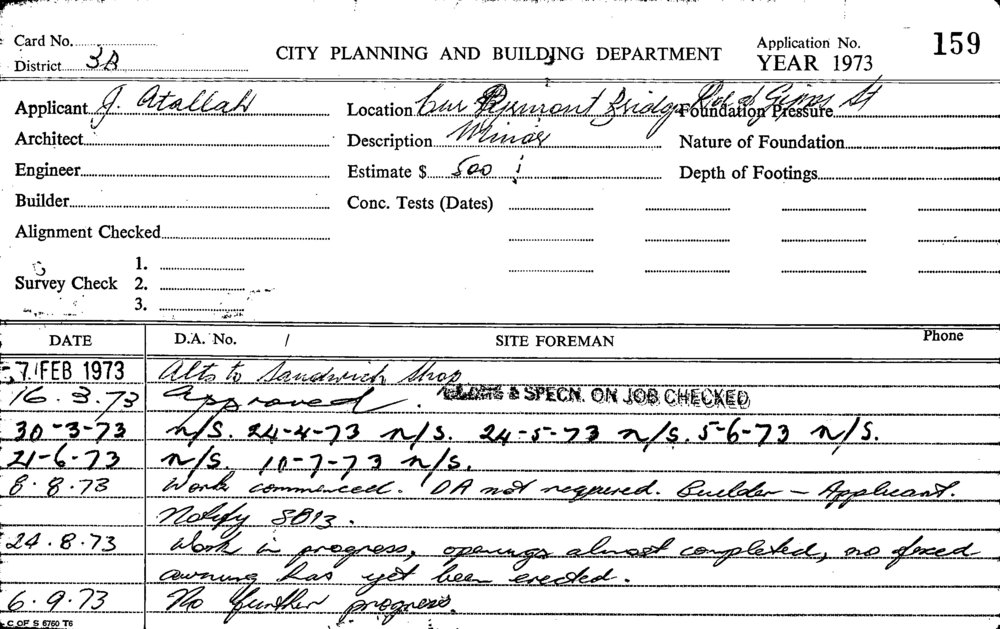 Card No.
District 3A
CITY PLANNING AND BUILDING DEPARTMENT
Application No. 159
YEAR 1973
Applicant J. Atallah
Location Cnr Pyrmont Bridge Rd & Gipps St
Foundation Pressure
Architect
Description Minor
Nature of Foundation
Engineer
Estimate $ 500
Depth of Footings
Builder
Conc. Tests (Dates)
Alignment Checked
Survey Check
1.
2.
3.
DATE D.A. No. / SITE FOREMAN Phone
7 FEB 1973 Alts to Sandwich Shop
16.3.73 Approved. & SPECN. ON JOB CHECKED
30-3-73 n/S. 24-4-73 n/S. 24-5-73 n/S. 5-6-73 n/S.
21-6-73 n/S. 10-7-73 n/S.
8.8.73 Work commenced. DA not required. Builder - Applicant.
Notify SB13.
24.8.73 Work in progress, openings almost completed, no fixed
awning has yet been erected.
6.9.73 No further progress.
C OF S 6760 T6